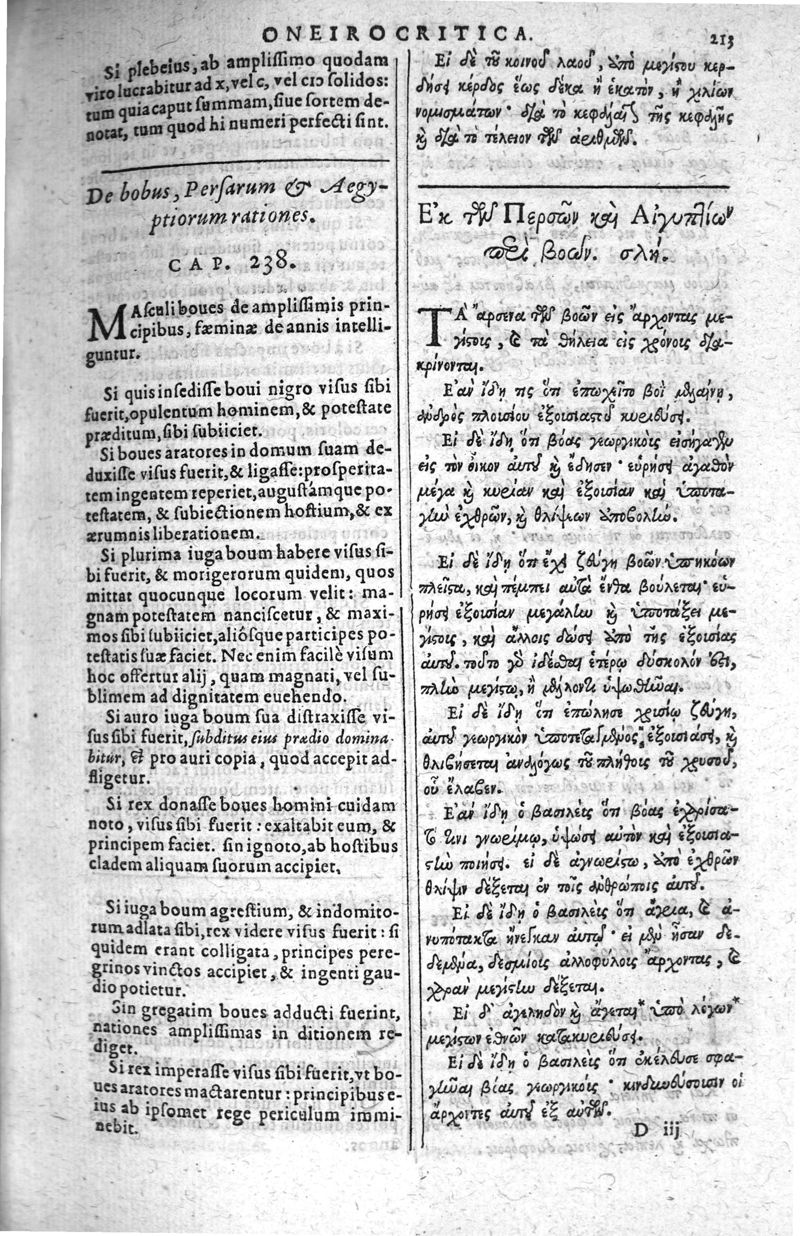 ONEIROCRITICA. 213
Si plebeius, ab amplissimo quodam
viro lucrabitur ad x, vel c, vel cIↄ solidos:
tum quia caput summam, siue sortem de-
notat, tum quod hi numeri perfecti sint.
De bobus, Persarum & Aegy-
ptiorum rationes.
CAP. 238.
MAsculi boues de amplissimis prin-
cipibus, fæminæ de annis intelli-
guntur.
Si quis insedisse boui nigro visus sibi
fuerit, opulentum hominem, & potestate
præditum, sibi subiiciet.
Si boues aratores in domum suam de-
duxisse visus fuerit, & ligasse: prosperita-
tem ingentem reperiet, augustámque po-
testatem, & subiectionem hostium, & ex
ærumnis liberationem.
Si plurima iuga boum habere visus si-
bi fuerit, & morigerorum quidem, quos
mittat quocunque locorum velit: ma-
gnam potestatem nanciscetur, & maxi-
mos sibi subiiciet, aliósque participes po-
testatis suæ faciet. Nec enim facilè visum
hoc offertur alij, quam magnati, vel su-
blimem ad dignitatem euehendo.
Si auro iuga boum sua distraxisse vi-
sus sibi fuerit, subditus eius prædio domina-
bitur, & pro auri copia, quod accepit ad-
fligetur.
Si rex donasse boues homini cuidam
noto, visus sibi fuerit: exaltabit eum, &
principem faciet. sin ignoto, ab hostibus
cladem aliquam suorum accipiet.
Si iuga boum agrestium, & indomito-
rum adlata sibi, rex videre visus fuerit: si
quidem erant colligata, principes pere-
grinos vinctos accipiet, & ingenti gau-
dio potietur.
Sin gregatim boues adducti fuerint,
nationes amplissimas in ditionem re-
diget.
Si rex imperasse visus sibi fuerit, vt bo-
ues aratores mactarentur: principibus e-
ius ab ipsomet rege periculum immi-
nebit.
Εἰ δὲ τοῦ κοινοῦ λαοῦ, ὑπὸ μεγίστου κερ-
δήσῃ κέρδος ἕως δέκα ἢ ἑκατὸν, ἢ χιλίων
νομισμάτων· διὰ τὸ κεφάλαιον τῆς κεφαλῆς
καὶ διὰ τὸ τέλειον τῶν ἀριθμῶν.
Ἐκ τῶν Περσῶν καὶ Αἰγυπτίων
περὶ βοῶν. σλή.
ΤΑ ἄρσενα τῶν βοῶν εἰς ἄρχοντας με-
γίστοις, καὶ τὰ θήλεια εἰς χρόνοις δια-
κρίνονται.
Ἐὰν ἴδῃ τις ὅτι ἐπωχεῖτο βοῒ μελαίνῃ,
ἀνδρὸς πλουσίου ἐξουσιαστοῦ κυριεύσῃ.
Εἰ δὲ ἴδῃ ὅτι βόας γεωργικοὺς εἰσήγαγεν
εἰς τὸν οἶκον αὐτοῦ καὶ ἔδησεν· εὑρήσῃ ἀγαθὸν
μέγα καὶ κυρίαν καὶ ἐξουσίαν καὶ ὑποτα-
γὴν ἐχθρῶν, καὶ θλίψεων ὑποβολήν.
Εἰ δὲ ἴδῃ ὅτι ἔχει ζεύγη βοῶν ὑπηκόων
πλεῖστα, καὶ πέμπει αὐτὰ ἔνθα βούλεται· εὑ-
ρήσῃ ἐξουσίαν μεγάλην καὶ ὑποτάξει με-
γίστοις, καὶ ἄλλοις δώσῃ ἀπὸ τῆς ἐξουσίας
αὐτοῦ. τοῦτο γὸ ἰδέσθαι ἑτέρῳ δύσκολόν ἐστι,
πλὴν μεγίστῳ, ἢ μέλλοντι ὑψωθῆναι.
Εἰ δὲ ἴδῃ ὅτι ἐπώλησε χρυσίῳ ζεύγη,
αὐτοῦ γεωργικὸν ὑποτεταγμένος, ἐξουσιάσῃ, καὶ
θλιβήσεται ἀναλόγως τοῦ πλήθους τοῦ χρυσοῦ,
οὗ ἔλαβεν.
Ἐὰν ἴδῃ ὁ βασιλεὺς ὅτι βόας ἐχαρίσα-
το τινι γνωρίμῳ, ὑψώσῃ αὐτὸν καὶ ἐξουσια-
στὴν ποιήσῃ. εἰ δὲ ἀγνωρίστῳ, ὑπὸ ἐχθρῶν
θλίψιν δέξεται ἐν τοῖς ἀνθρώποις αὐτοῦ.
Εἰ δὲ ἴδῃ ὁ βασιλεὺς ὅτι ἄγρια, καὶ ἀ-
νυπότακτα ἤνεγκαν αὐτῷ· εἰ μὲν ἦσαν δε-
δεμένα, δεσμίοις ἀλλοφύλοις ἄρχοντας, καὶ
χαρὰν μεγίστην δέξεται.
Εἰ δ' ἀγεληδὸν καὶ ἄγεται* ὑπὸ λέγων*
μεγίστων ἐθνῶν κατακυριεύσῃ.
Εἰ δὲ ἴδῃ ὁ βασιλεὺς ὅτι ἐκέλευσε σφα-
γῆναι βόας γεωργικοὺς· κινδυνεύσουσιν οἱ
ἄρχοντες αὐτοῦ ἐξ αὐτοῦ.
D iij